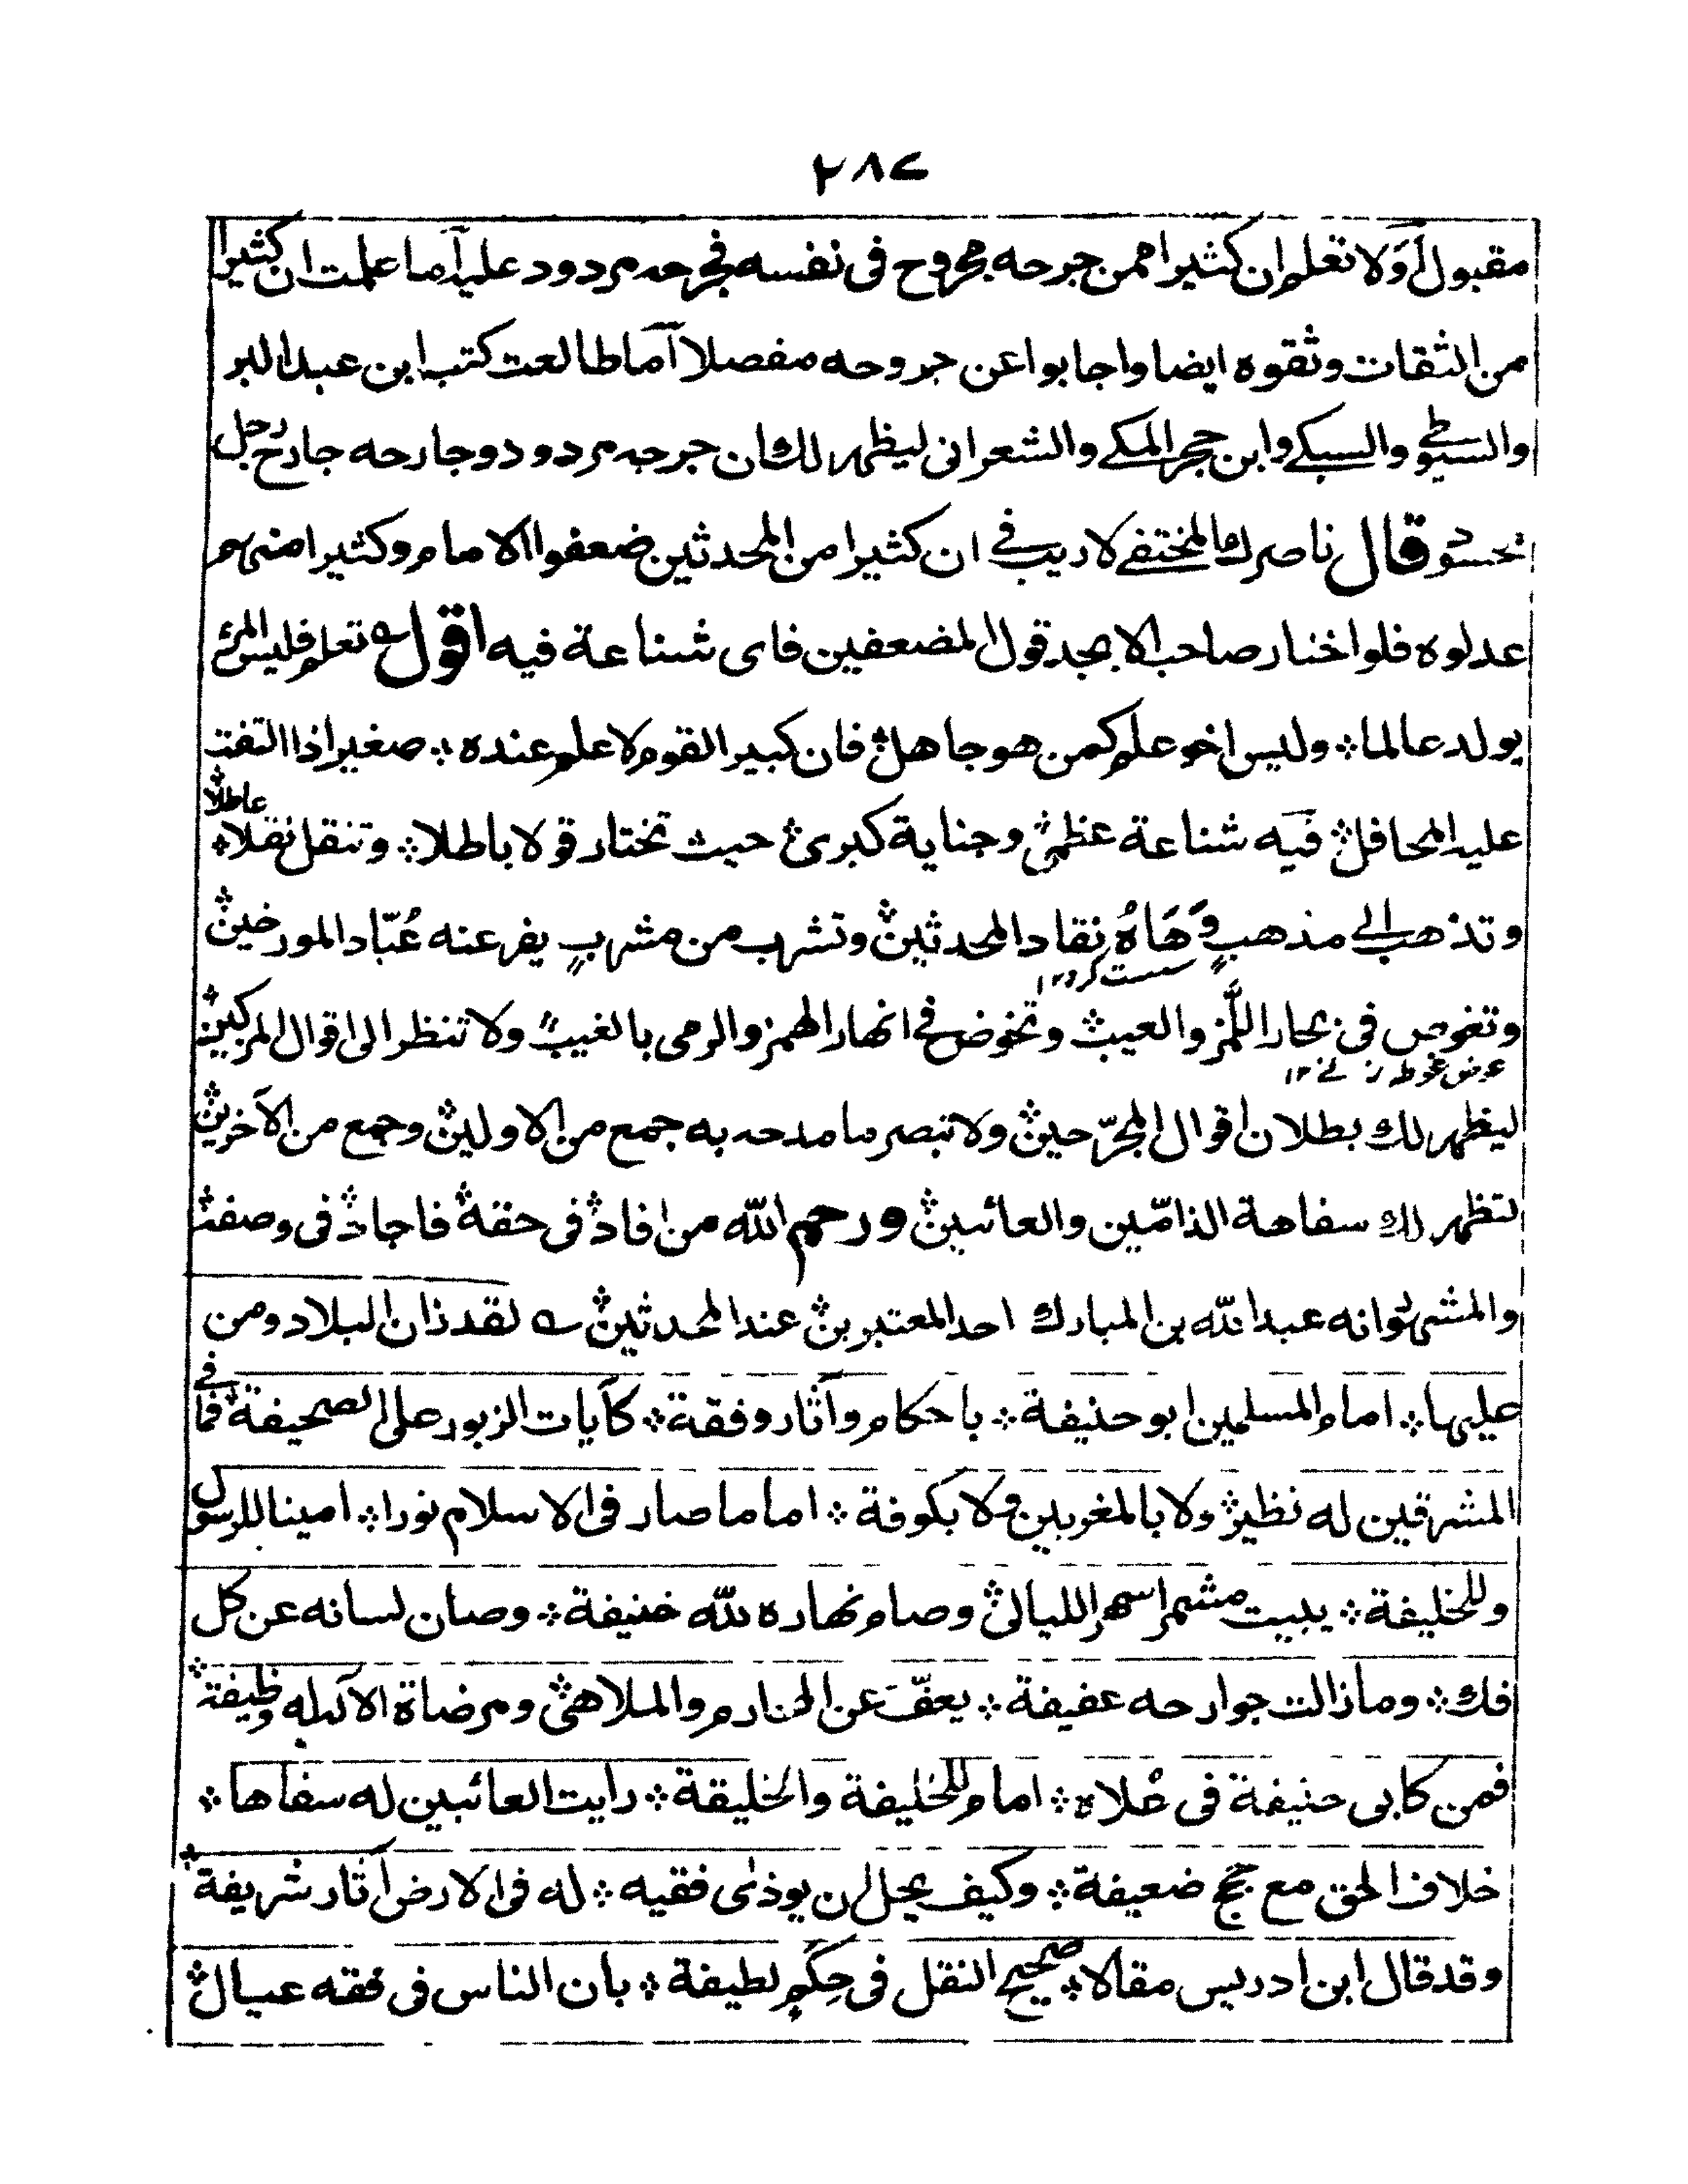 ٢٨٧
مقبول أَوَلا تعلم ان كثيرا ممن جرحه مجروح فى نفسه فجرحه مردود عليه آما علمت ان كثيرا
من الثقات وثقوه ايضا واجابوا عن جروحه مفصلا آما طالعت كتب ابن عبد البر
والسيوطى والسبكى وابن حجر المكى والشعرانى ليظهر لك ان جرحه مردود وجارحه جارح رجل
حسود قال ناصرك المختفى لا ريب فى ان كثيرا من المحدثين ضعفوا الامام وكثيرا منهم
عدلوه فلو اختار صاحب الابجد قول المضعفين فاى شناعة فيه اقول ؎ تعلم فليس المرء
يولد عالما ؞ وليس اخو علم كمن هو جاهل ؞ فان كبير القوم لا علم عنده ؞ صغير اذا التفت
عليه المحافل ؞ فيه شناعة عظمى ؞ وجناية كبرى ؞ حيث تختار قولا باطلا ؞ وتنقل نقلا عاطلا ؞
وتذهب الى مذهبٍ وَهَّاهُ نقاد المحدثين ؞ وتشرب من مشربٍ يفر عنه عُبّاد المورخين ؞
سست كرد ١٢
وتغوص فى بحار اللَّمز والعيب ؞ وتخوض فى انهار الهمز والرمى بالغيب ؞ ولا تنظر الى اقوال المزكين ؞
ليظهر لك بطلان اقوال المجرّحين ؞ ولا تبصر ما مدحه به جمع من الاولين ؞ وجمع من الآخرين ؞
لتظهر لك سفاهة الذامّين والعائبين ؞ ورحم الله من افاد ؞ فى حقه ؞ فاجاد ؞ فى وصفه ؞
والمشهور انه عبد الله بن المبارك احد المعتبرين ؞ عند المحدثين ؞ ؎ لقد زان البلاد ومن
عليها ؞ امام المسلمين ابو حنيفة ؞ باحكام وآثار وفقة ؞ كآيات الزبور على الصحيفة ؞ فما فى
المشرقين له نظير ؞ ولا بالمغربين ولا بكوفة ؞ اماما صار فى الاسلام نورا ؞ امينا للرسول
وللخليفة ؞ يبيت مشمرا سهر الليالى ؞ وصام نهاره لله خنيفة ؞ وصان لسانه عن كل
فك ؞ وما زالت جوارحه عفيفة ؞ يعفّ عن المحارم والملاهى ؞ ومرضاة الآله له وظيفة ؞
فمن كابى حنيفة فى عُلاه ؞ امام للخليفة والخليقة ؞ رايت العائبين له سفاها ؞
خلاف الحق مع حجج ضعيفة ؞ وكيف يحل ان يوذى فقيه ؞ له فى الارض آثار شريفة ؞
وقد قال ابن ادريس مقالا ؞ صحيح النقل فى حِكَم لطيفة ؞ بان الناس فى فقه عيال ؞